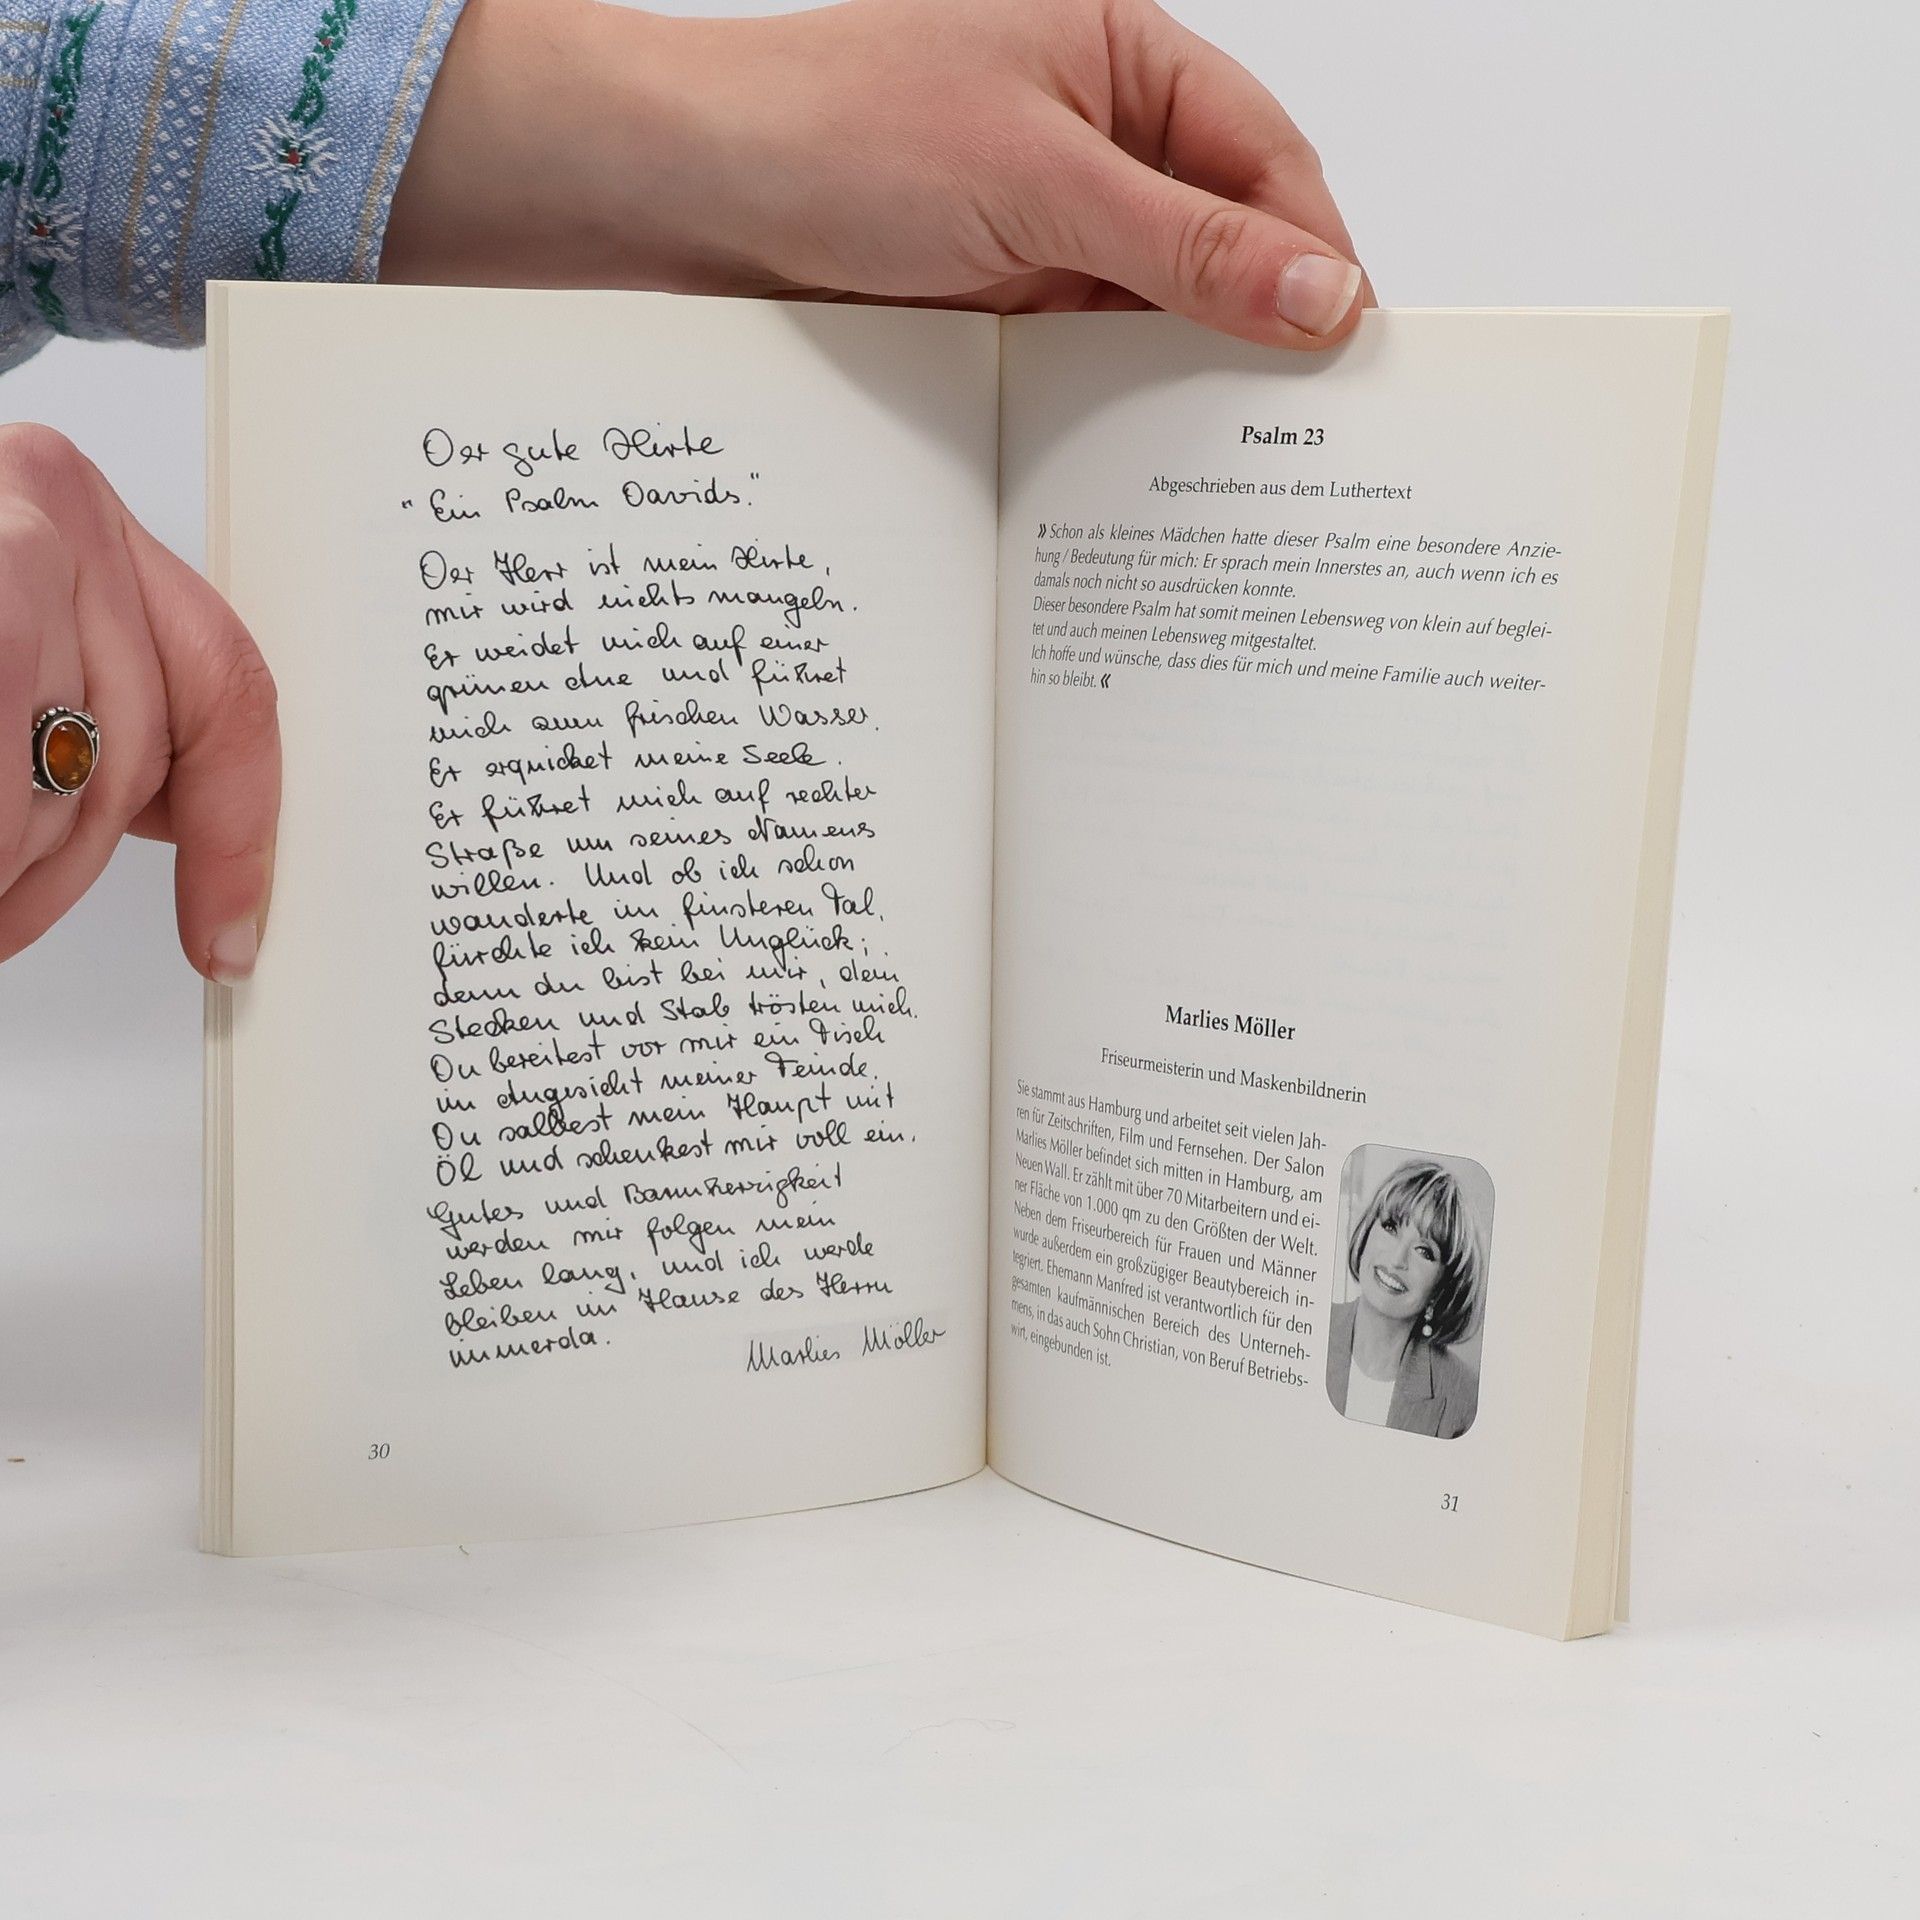 Der gute Hirte
"Ein Psalm Davids."
Der Herr ist mein Hirte,
mir wird nichts mangeln.
Er weidet mich auf einer
grünen Aue und führet
mich zum frischen Wasser.
Er erquicket meine Seele.
Er führet mich auf rechter
Straße um seines Namens
willen. Und ob ich schon
wanderte im finsteren Tal,
fürchte ich kein Unglück;
denn du bist bei mir, dein
Stecken und Stab trösten mich.
Du bereitest vor mir ein Tisch
im Angesicht meiner Feinde.
Du salbest mein Haupt mit
Öl und schenkest mir voll ein.
Gutes und Barmherzigkeit
werden mir folgen mein
Leben lang, und ich werde
bleiben im Hause des Herrn
immerda.
Marlies Möller
30
Psalm 23
Abgeschrieben aus dem Luthertext
»Schon als kleines Mädchen hatte dieser Psalm eine besondere Anzie-
hung / Bedeutung für mich: Er sprach mein Innerstes an, auch wenn ich es
damals noch nicht so ausdrücken konnte.
Dieser besondere Psalm hat somit meinen Lebensweg von klein auf beglei-
tet und auch meinen Lebensweg mitgestaltet.
Ich hoffe und wünsche, dass dies für mich und meine Familie auch weiter-
hin so bleibt.«
Marlies Möller
Friseurmeisterin und Maskenbildnerin
Sie stammt aus Hamburg und arbeitet seit vielen Jah-
ren für Zeitschriften, Film und Fernsehen. Der Salon
Marlies Möller befindet sich mitten in Hamburg, am
Neuen Wall. Er zählt mit über 70 Mitarbeitern und ei-
ner Fläche von 1.000 qm zu den Größten der Welt.
Neben dem Friseurbereich für Frauen und Männer
wurde außerdem ein großzügiger Beautybereich in-
tegriert. Ehemann Manfred ist verantwortlich für den
gesamten kaufmännischen Bereich des Unterneh-
mens, in das auch Sohn Christian, von Beruf Betriebs-
wirt, eingebunden ist.
31